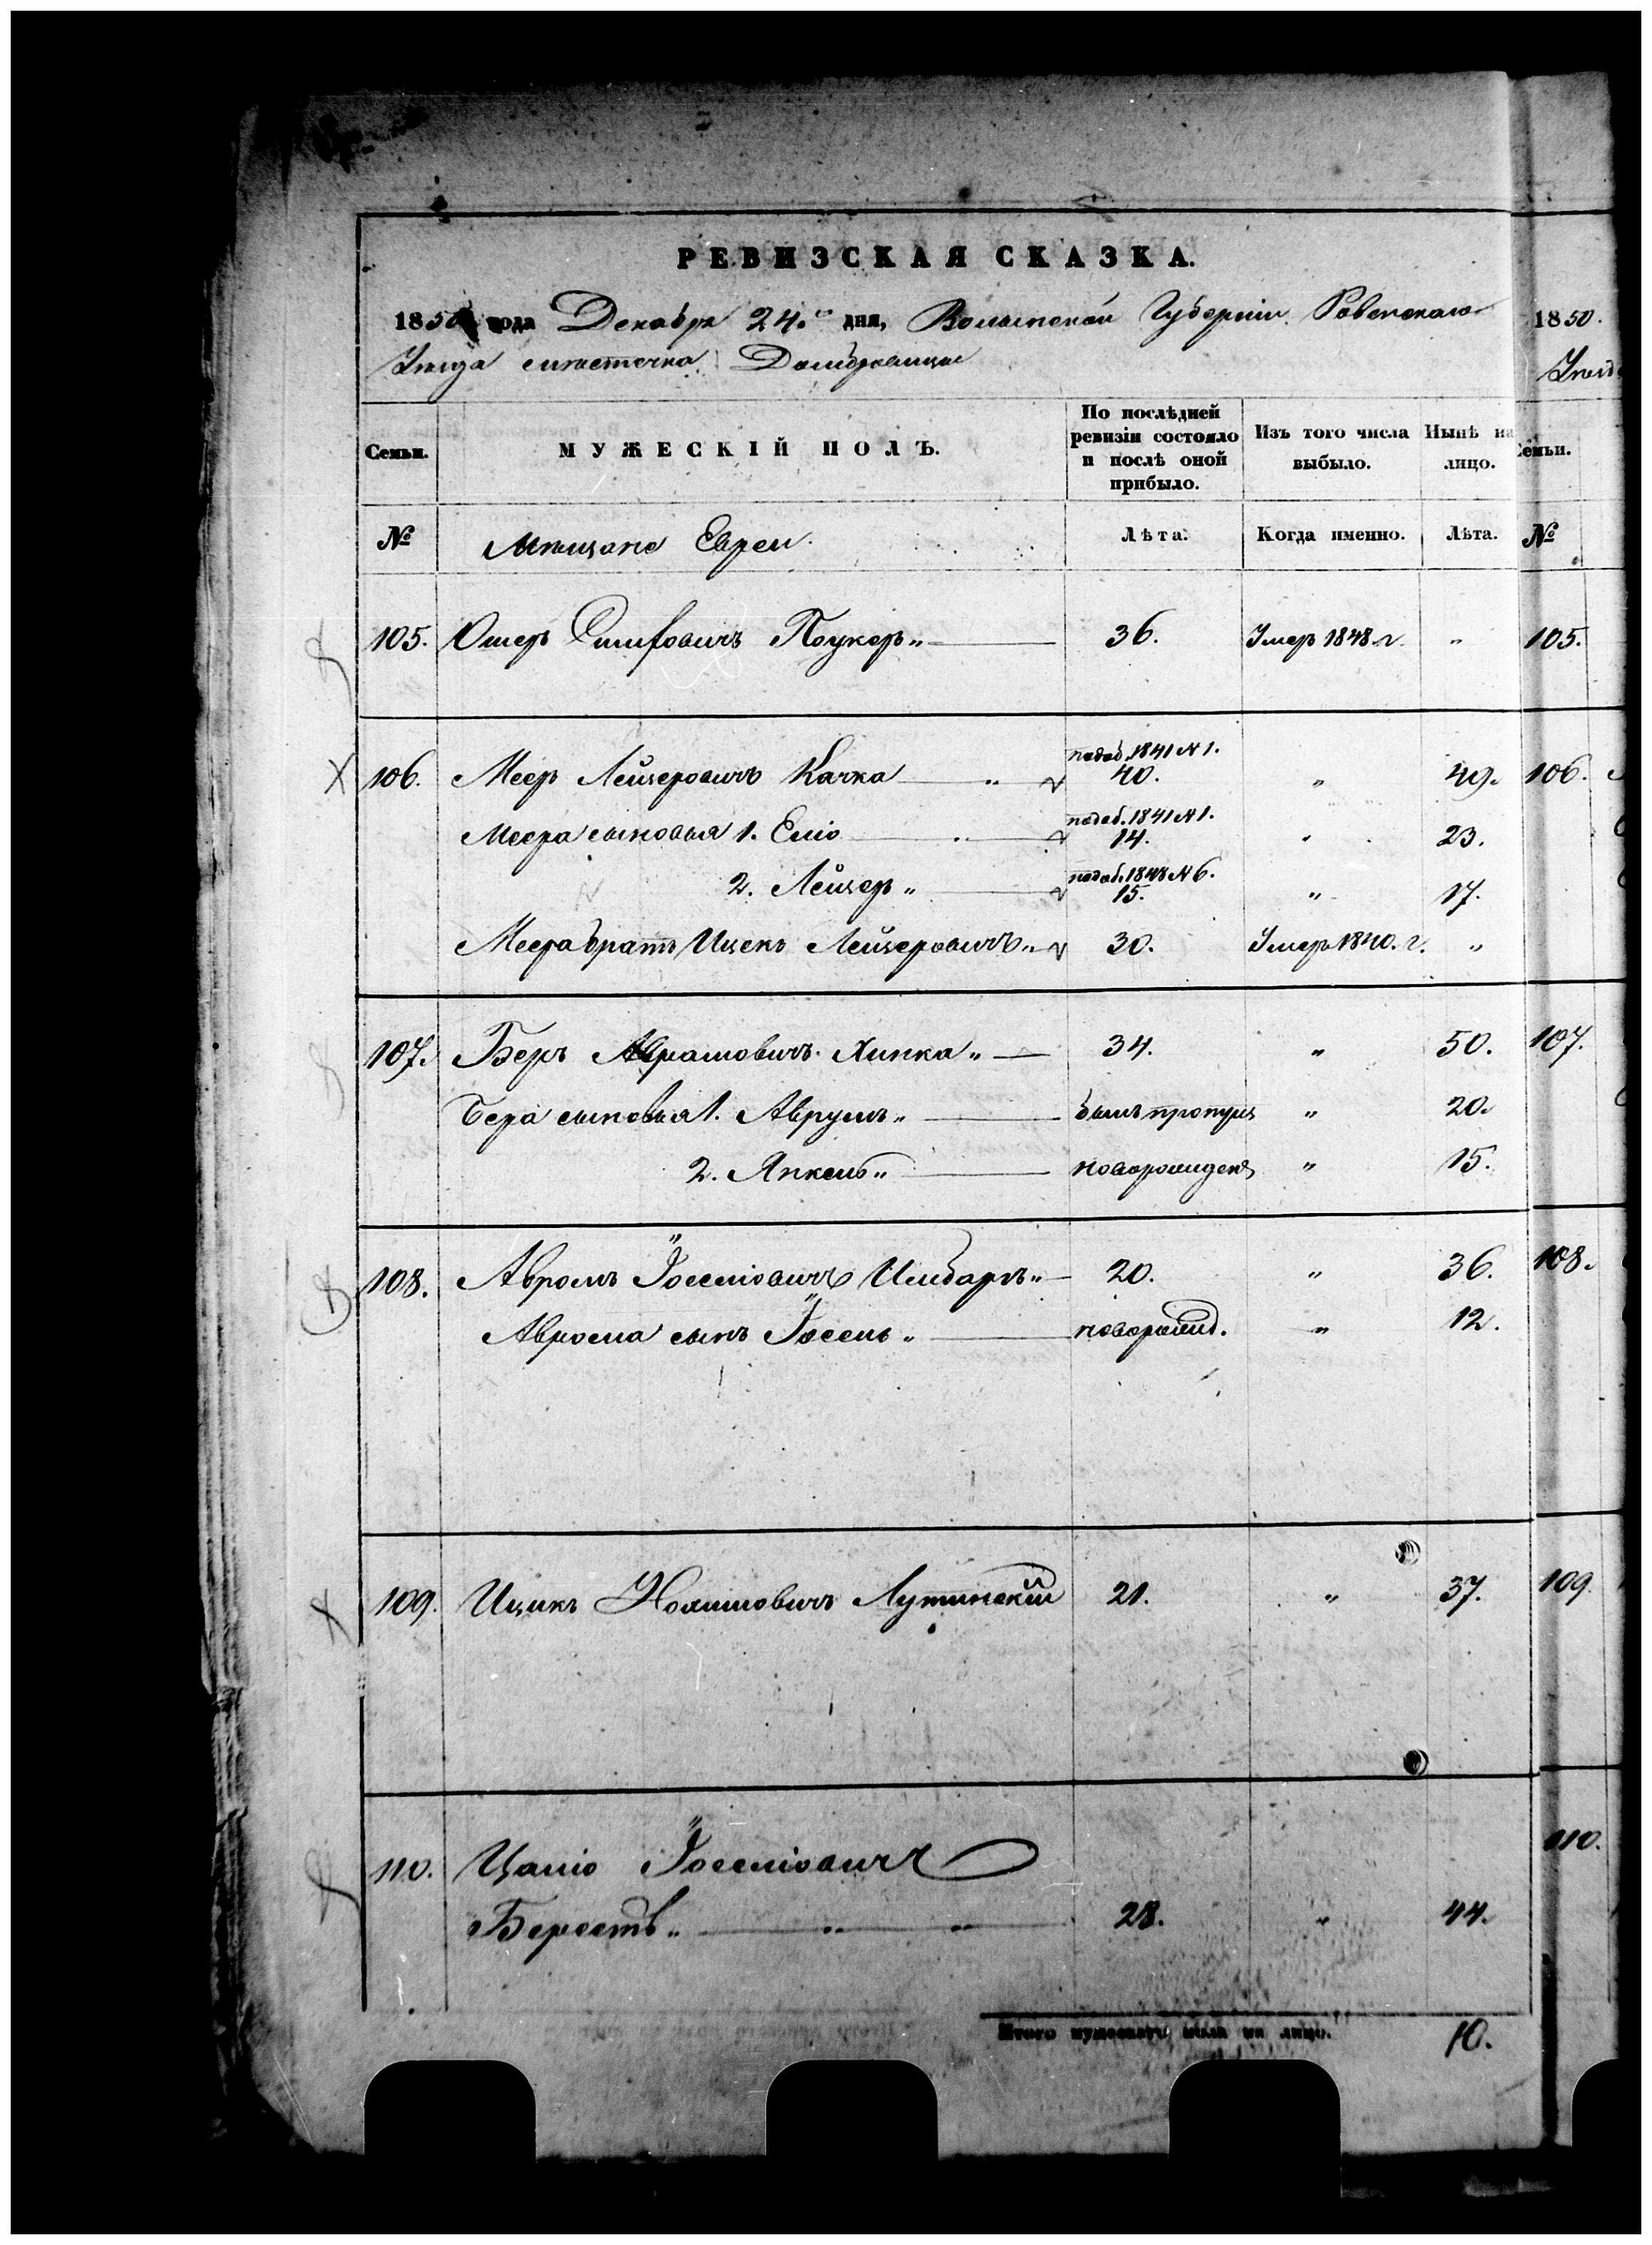 РЕВИЗСКАЯ СКАЗКА.
1850 года Декабря 24.го дня, Волынской Губерніи Ровенскаго
Уезда местечка Домбровицы
Семьи.
МУЖЕСКІЙ ПОЛЪ.
По послѣдней ревизіи состояло и послѣ оной прибыло.
Изъ того числа выбыло.
Нынѣ на лицо.
№
Мещане Евреи.
Лѣта.
Когда именно.
Лѣта.
105. Ошер Поукер „ 36. Умер 1848 г. „
подоб. 1841 № 1.
106. Меер Лейзерович Качка „ 40. „ 49.
подоб. 1841 № 1.
Меера сыновья 1. Еліо „ 14. „ 23.
подоб. 1848 № 6.
2. Лейзер „ 15. „ 17.
Меера брат Ицек Лейзерович „ 30. Умер 1840. г. „
107. Беръ Аврамовичъ Хинка „ 34. „ 50.
Бера сыновья 1. Аврумъ „ былъ пропущ „ 20.
2. Янкель „ новорожденъ „ 15.
108. Авромъ Іоселіовичъ Имбаръ „ 20. „ 36.
Аврома сынъ Іосель „ новорожд. „ 12.
109. Ицикъ Лутинскій 21. „ 37.
110. Цаліо Іоселіовичъ
Берестъ „ „ „ 28. „ 44.
Итого мужескаго пола на лицо. 10.
1850.
Семьи.
№
105.
106.
107.
108.
109.
110.